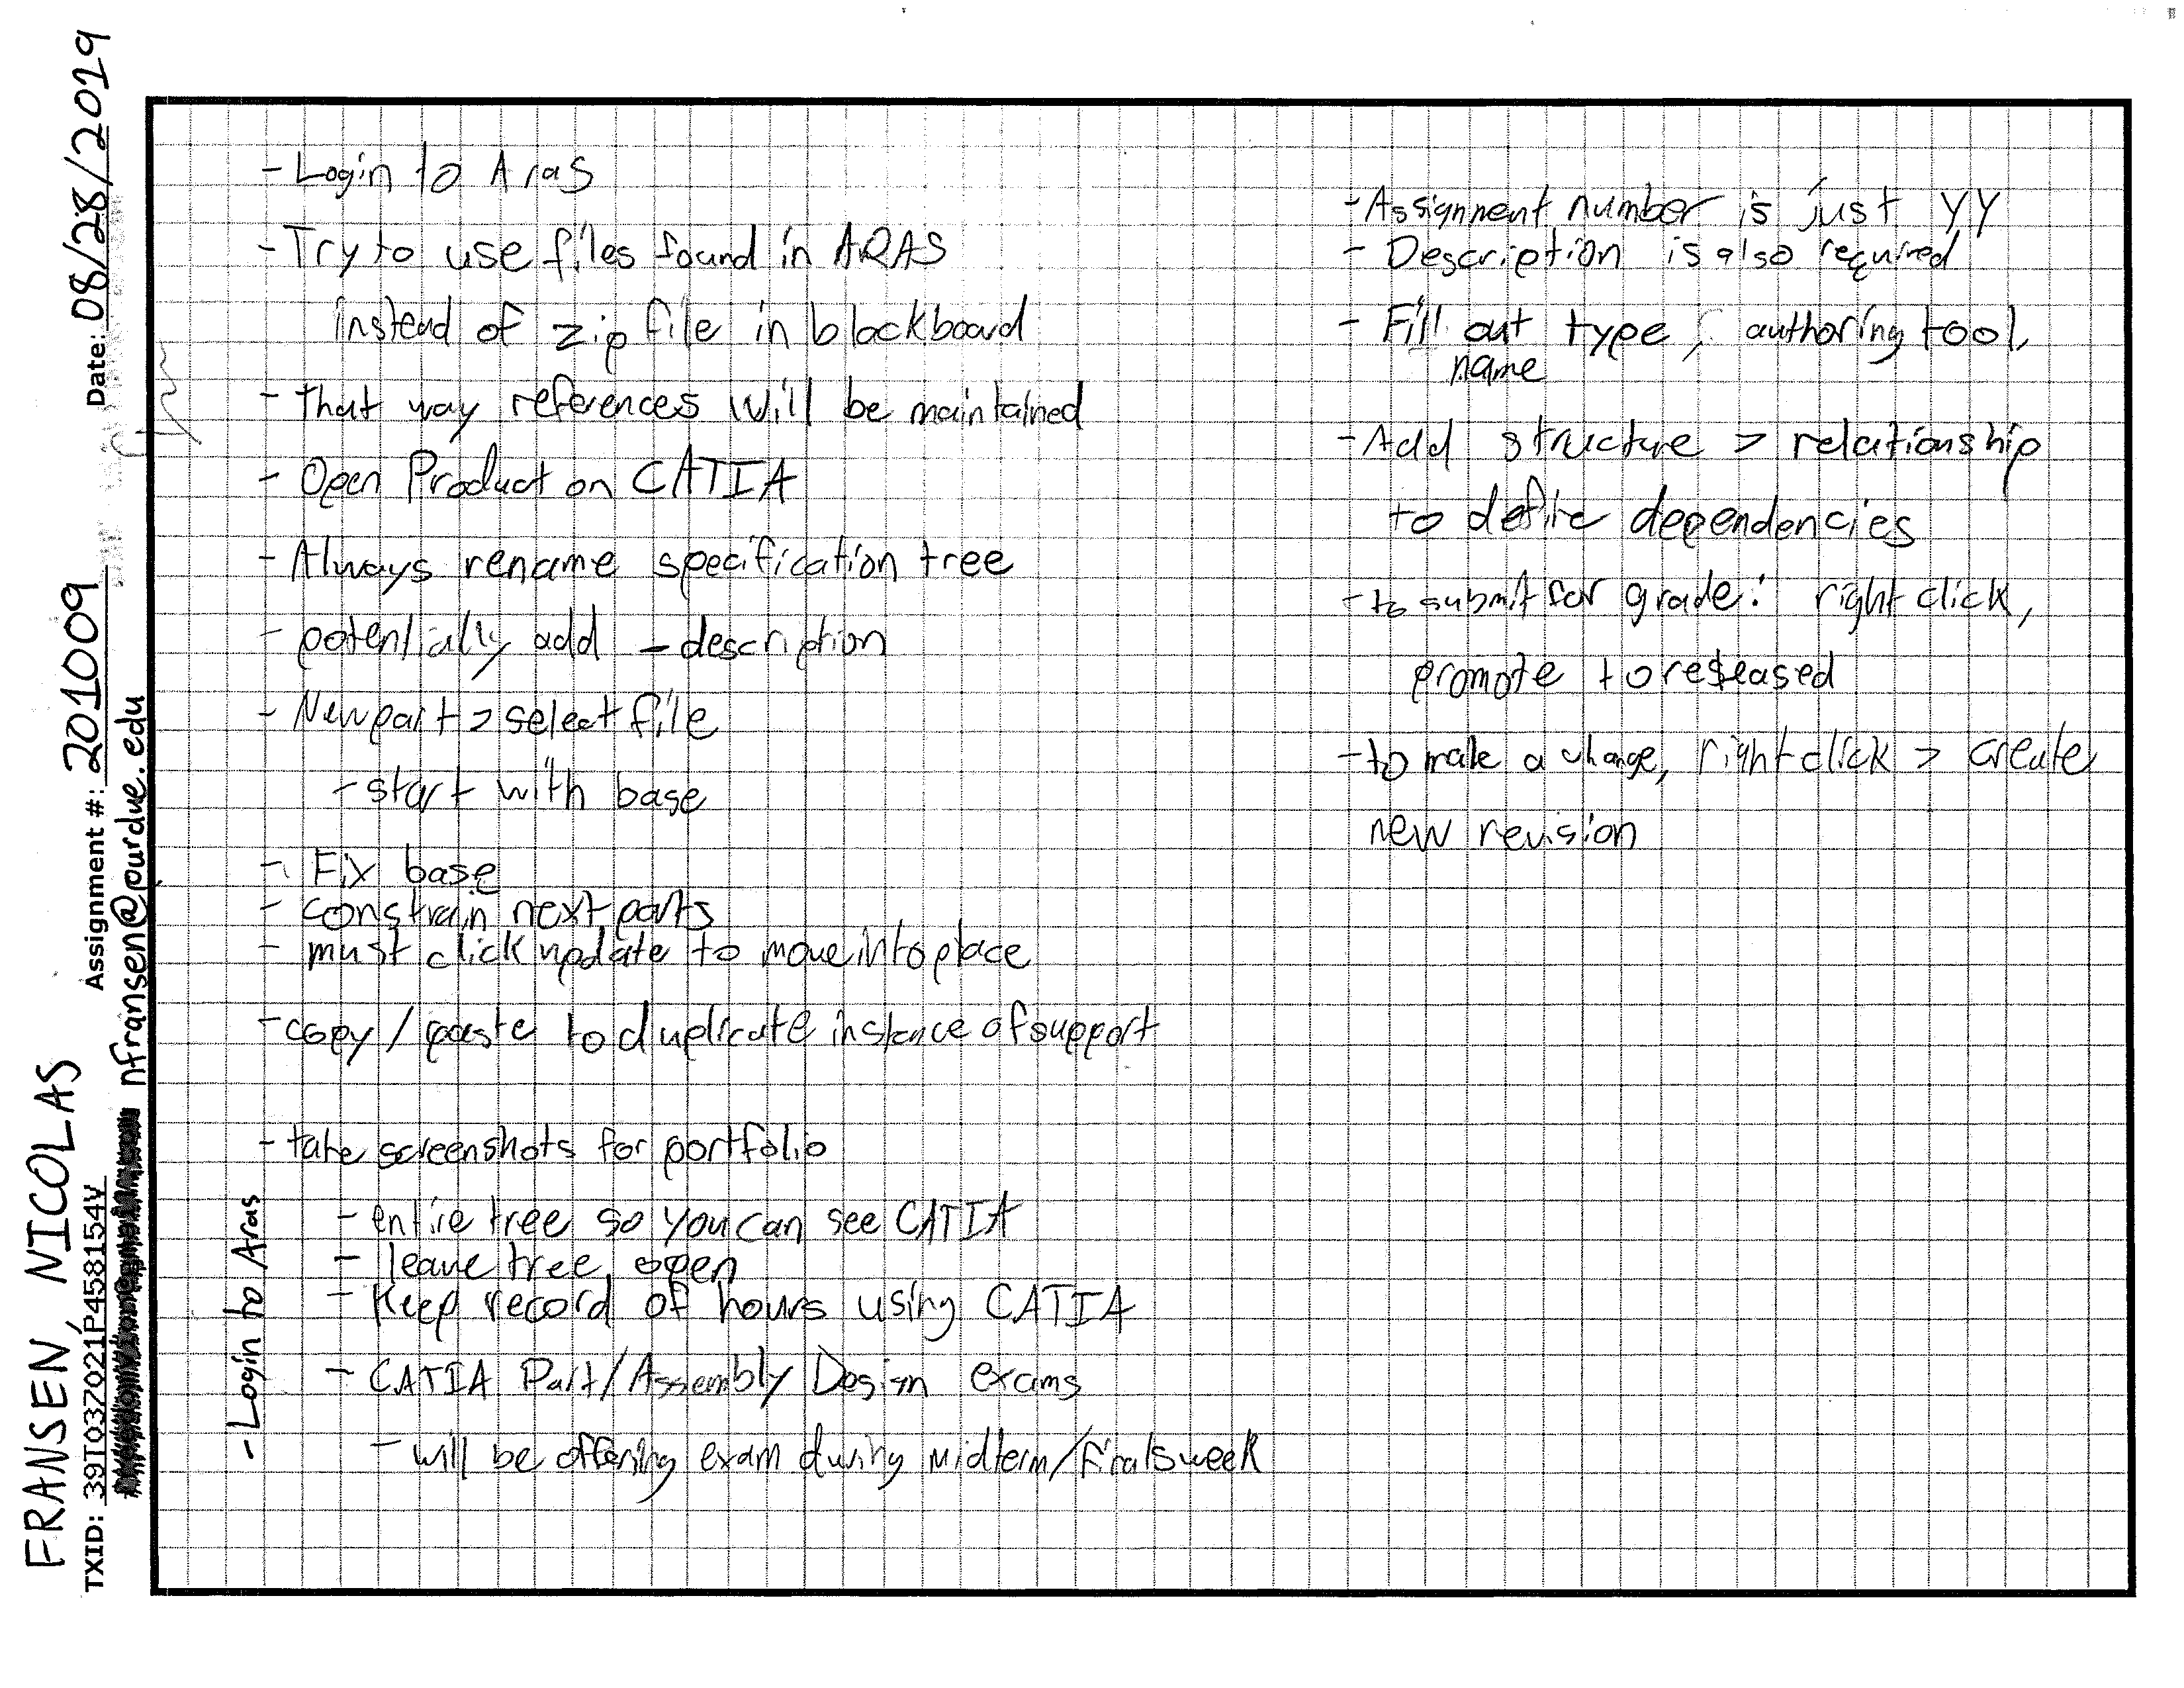 FRANSEN, NICOLAS
TXID: 39T037021P4581541V
Assignment #: 201009
Date: 08/28/2019
nfransen@purdue.edu
- Login to Aras
- Try to use files found in ARAS
instead of zip file in blackboard
- that way references will be maintained
- Open Product on CATIA
- Always rename specification tree
- potentially add - description
- New part > select file
- start with base
- Fix base
- constrain next parts
- must click update to move into place
- copy / paste to duplicate instance of support
- take screenshots for portfolio
- entire tree so you can see CATIA
- leave tree open
- Keep record of hours using CATIA
- CATIA Part/Assembly Design exams
- will be offering exam during midterm/finals week
- Login to Aras
- Assignment number is just YY
- Description is also required
- Fill out type, authoring tool,
name
- Add structure > relationship
to define dependencies
- to submit for grade: right click,
promote to released
- to make a change, right click > create
new revision